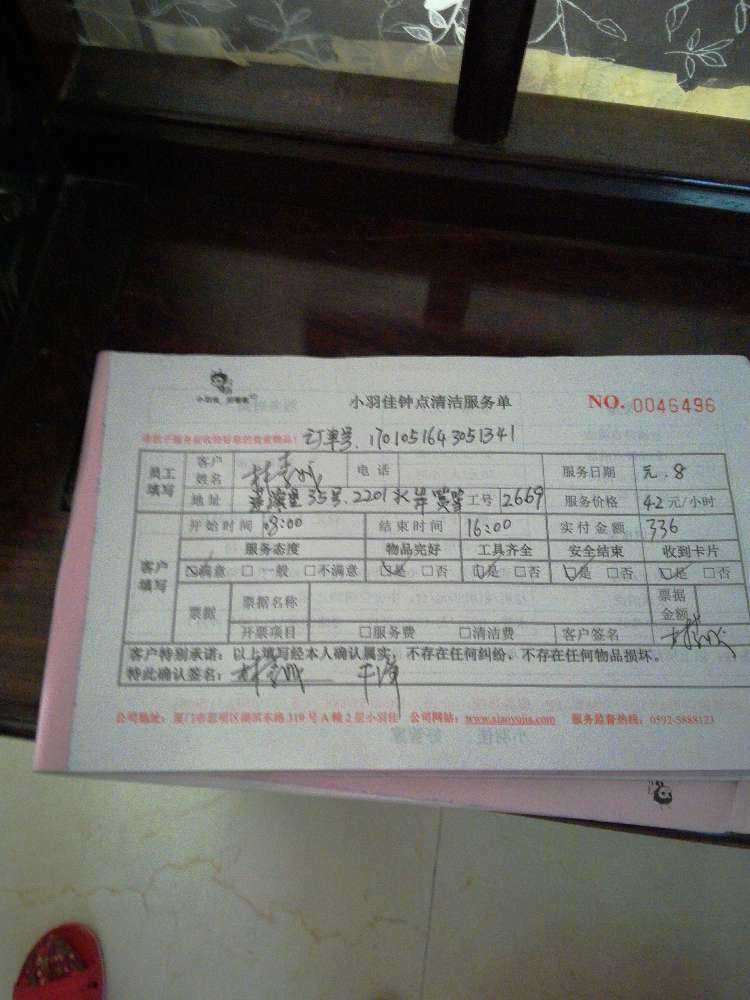 小羽佳 好管家
小羽佳钟点清洁服务单 NO. 0046496
订单号. 17010516430513 41
员工填写 客户姓名 电话 服务日期 元.8
地址 35号.2201 工号 2669 服务价格 42 元/小时
开始时间 08:00 结束时间 16:00 实付金额 336
客户填写 服务态度 物品完好 工具齐全 安全结束 收到卡片
☑满意 □一般 □不满意 ☑是 □否 ☑是 □否 ☑是 □否 ☑是 □否
票据 票据名称 票据金额
开票项目 □服务费 □清洁费 客户签名
客户特别承诺：以上填写经本人确认属实，不存在任何纠纷，不存在任何物品损坏。
特此确认签名：
公司地址：厦门市思明区湖滨东路319号A幢2层小羽佳 公司网站：www.xiaoyujia.com 服务监督热线：0592-5888123